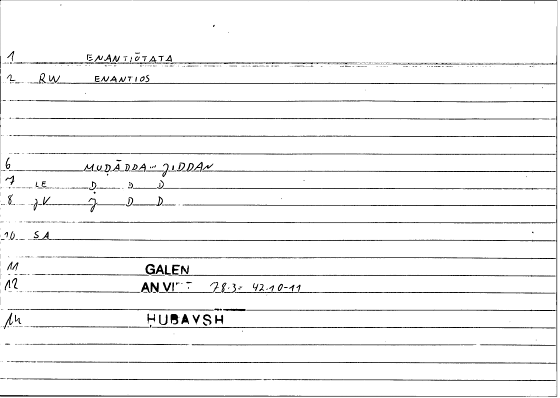 1 ENANTIŌTATA
2 RW ENANTIOS
6 MUḌĀDDA
7 LE Ḍ D D
8 JV J D D
10 SA
11 GALEN
12 AN VI 78.3 42.10-11
14 ḤUBAYSH